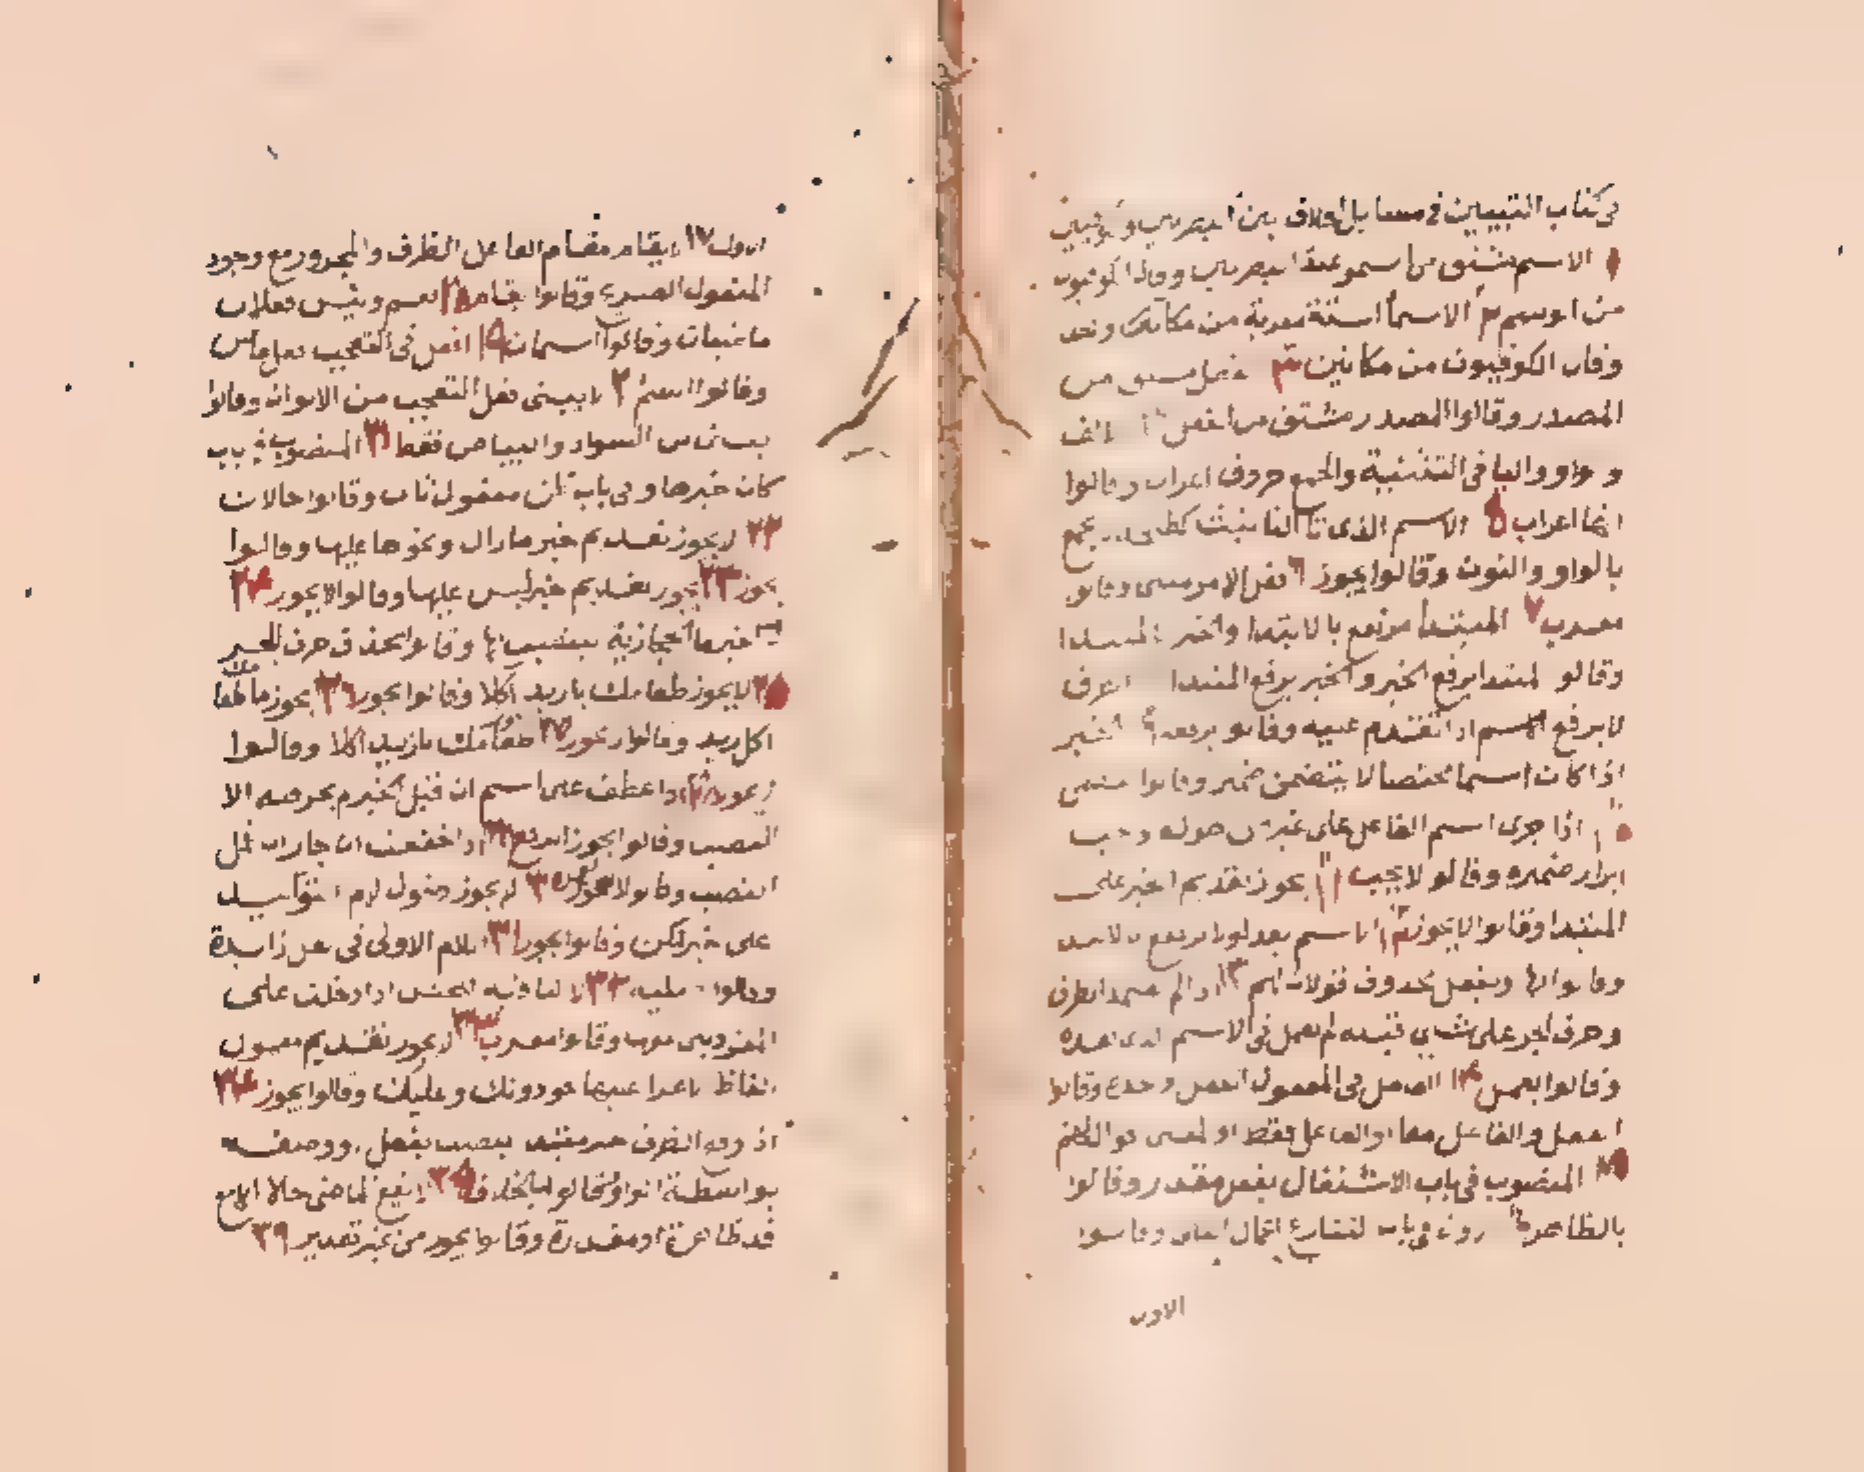 في كتاب التبيين في مسايل الخلاف بين البصريين والكوفيين
الاسم مشتق من السمو عند البصريين وقال الكوفيون
من الوسم ٢ الاسماء الستة معربة من مكان واحد
وقال الكوفيون من مكانين ٣ الفعل مشتق من
المصدر وقالوا المصدر مشتق من الفعل ٤ الالف
والواو واليا في التثنية والجمع حروف اعراب وقالوا
انها اعراب ٥ الاسم الذي فيه تا التانيث كطلحة لا يجمع
بالواو والنون وقالوا يجوز ٦ فعل الامر مبني وقالوا
معرب ٧ المبتدأ مرتفع بالابتدا والخبر بالمبتدا
وقالوا المبتدا يرفع الخبر والخبر يرفع المبتدا ٨ الظرف
لا يرفع الاسم اذا تقدم عليه وقالوا يرفعه ٩ الخبر
اذا كان اسما محضا لا يتضمن ضمير وقالوا يتضمن
١٠ اذا جرى اسم الفاعل على غير من هو له وجب
ابراز ضميره وقالوا لا يجب ١١ يجوز تقديم الخبر على
المبتدا وقالوا لا يجوز ١٢ الاسم بعد لولا يرتفع بالابتدا
وقالوا بها او بفعل محذوف قولان لهم ١٣ اذا لم يعتمد الظرف
وحرف الجر على شي قبله لم يعمل في الاسم الذي بعده
وقالوا يعمل ١٤ العامل في المفعول الفعل وحده وقالوا
الفعل والفاعل معا او الفاعل فقط او المعنى اقوال لهم
١٥ المنصوب في باب الاشتغال بفعل مقدر وقالوا
بالظاهر ١٦ الاولى في باب التنازع اعمال الثاني وقالوا
الاول
الاول ١٧ لا يقام مقام الفاعل الظرف والمجرور مع وجود
المفعول الصريح وقالوا يقام ١٨ نعم وبئس فعلان
ماضيان وقالوا اسمان ١٩ افعل في التعجب فعل ماض
وقالوا اسم ٢٠ لا يبنى فعل التعجب من الالوان وقالوا
يبنى من السواد والبياض فقط ٢١ المنصوب في باب
كان خبرها وفي باب ظن مفعول ثان وقالوا حالان
٢٢ لا يجوز تقديم خبر ما زال ونحوها عليها وقالوا
يجوز ٢٣ يجوز تقديم خبر ليس عليها وقالوا لا يجوز ٢٤
خبر ما الحجازية ينتصب بها وقالوا بحذف حرف الجر
٢٥ لا يجوز طعامك ما زيد آكلا وقالوا يجوز ٢٦ يجوز ما طعامك
اكل زيد وقالوا لا يجوز ٢٧ طعامك ما زيد آكلا وقالوا
لا يجوز ٢٨ اذا عطف على اسم ان قبل الخبر لم يجز فيه الا
النصب وقالوا يجوز الرفع ٢٩ اذا خففت ان جاز ان تعمل
النصب وقالوا لا يجوز ٣٠ لا يجوز دخول لام التوكيد
على خبر لكن وقالوا يجوز ٣١ اللام الاولى في لعل زايدة
وقالوا اصلية ٣٢ لا النافية للجنس اذا دخلت على
المفرد بني معها وقالوا معرب ٣٣ لا يجوز تقديم معمول
الفاظ الاغرا عليها نحو دونك وعليك وقالوا يجوز ٣٤
اذا وقع الظرف خبر مبتدا ينتصب بفعل او وصف
وقالوا بالخلاف ٣٥ لا يقع الماضي حالا الا مع
قد ظاهرة او مقدرة وقالوا يجوز من غير تقدير ٣٦